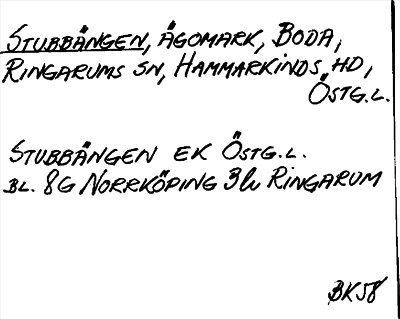 STUBBÄNGEN, ÄGOMARK, BODA,
RINGARUMS SN, HAMMARKINDS HD,
ÖSTG.L.
STUBBÄNGEN EK ÖSTG.L.
BL. 8G NORRKÖPING 3h RINGARUM
BK58